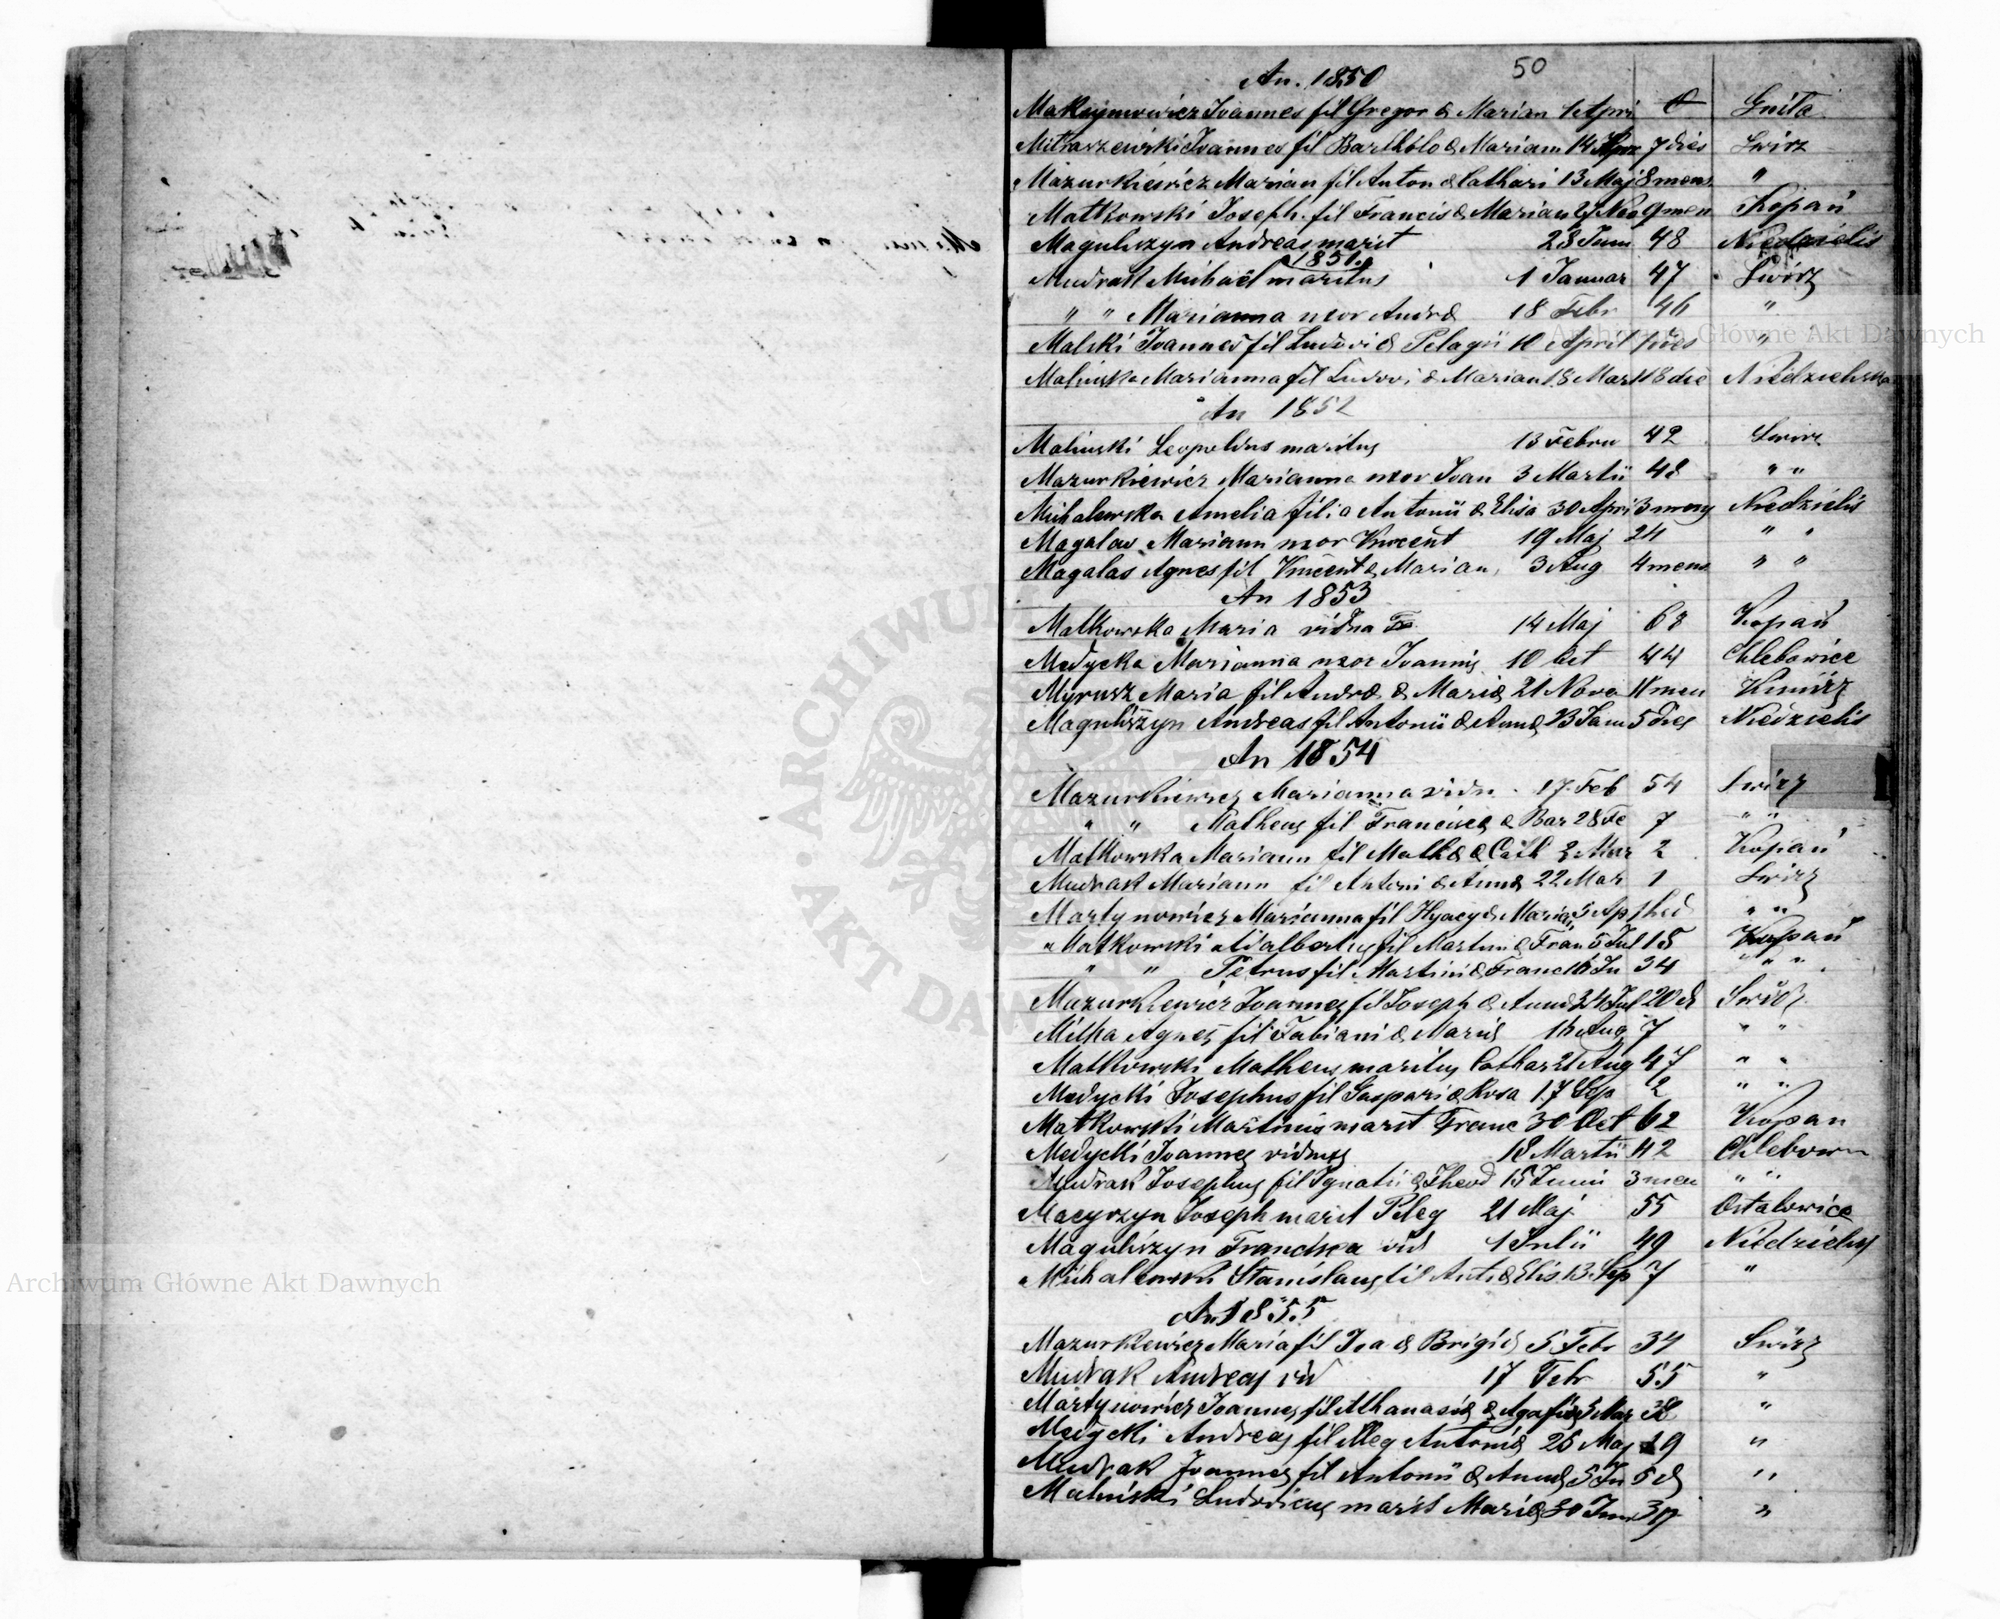 50
An. 1850
Maksymowicz Joannes fil Gregor & Marian 1 Apri 0 Gnita
Mitraszewski Joannes fil Barthólo & Mariam 14 7 dies Swirz
Mazurkiewicz Marian fil Anton & Cathari 13 Maj 8 mens "
Matkowski Joseph. fil Francis & Marian 27 Nov 9 men Kopań
Magulszyn Andreas marit 23 Juni 48 Niedzielis
1851.
Mudrak Michael maritus 1 Januar 47 Swirz
" " Marianna uxor Andræ 18 Febr 46 "
Malski Joannes fil Ludovi & Pelagii 10 April 1 dies "
Malinska Marianna fil Ludovi & Marian 18 Mar 18 die Niedzielska
An 1852
Malinski Leopoldus maritus 13 Febru 42 Swirz
Mazurkiewicz Marianna uxor Joan 3 Martii 48 " "
Michalewska Amelia filia Antonii & Elisa 30 Apri 3 mens Niedzielis
Magalas Mariann uxor Vincent 19 Maj 24 " "
Magalas Agnes fil Vincent & Marian, 3 Aug 4 mens " "
An 1853
Matkowska Maria vidua 14 Maj 68 Kopań
Medycka Marianna uxor Joannis 10 Oct 44 Chlebowice
Myrusz Maria fil Andræ & Mariæ 21 Nove 11 men Kimirz
Magulszyn Andreas fil Antonii & Annæ 23 Jam 5 dies Niedzielis
An 1854
Mazurkiewicz Marianna vidu 17 Feb 54 Swirz
" " Matheus fil Francisci & Bar 28 Fe 7 " "
Matkowska Mariann fil Math & Cath 2 Mar 2 Kopań
Mudrak Mariann fil Antoni & Annæ 22 Mar 1 Swirz
Martynowicz Marianna fil Hyacy & Maria 5 Ap " "
Matkowski Adalbertus fil Martini & Fran 5 Jul 15 Kopań
" " Petrus fil Martini & Franc 16 Ju 34 " "
Mazurkiewicz Joannes fil Joseph & Annæ 24 Jul 20 d Swirz
Milka Agnes fil Fabiani & Mariæ 16 Aug 7 " "
Matkowski Matheus maritus Cathar 21 Aug 47 " "
Medycki Josephus fil Gaspari & Rosa 17 Sep 2 " "
Matkowski Martinus marit Franc 30 Oct 62 Kopan
Medycki Joannes viduus 18 Martii 42 Chlebowi
Mudrak Josephus fil Ignatii & Theod 15 Junii 3 men " "
Macyszyn Joseph marit Peleg 21 Maj 55 Ostalowice
Magulszyn Francisca vid 1 Julii 49 Niedzielis
Michalewski Stanislaus fil Ant & Elis 13 Sep 7 "
An 1855
Mazurkiewicz Maria fil Joa & Brigid 5 Febr 34 Swirz
Mudrak Andreas vid 17 Febr 55 "
Martynowicz Joannes fil Athanasii & Agafia 5 Mar "
Medycki Andreas fil Antoniæ 26 Maj 19 "
Mudrak Joannes fil Antonii & Annæ 5 Ju 5 d "
Malinski Ludovicus marit Mariæ 30 Jun "
Archiwum Główne Akt Dawnych
Archiwum Główne Akt Dawnych
ARCHIWUM GŁÓWNE · AKT DAWNYCH ·